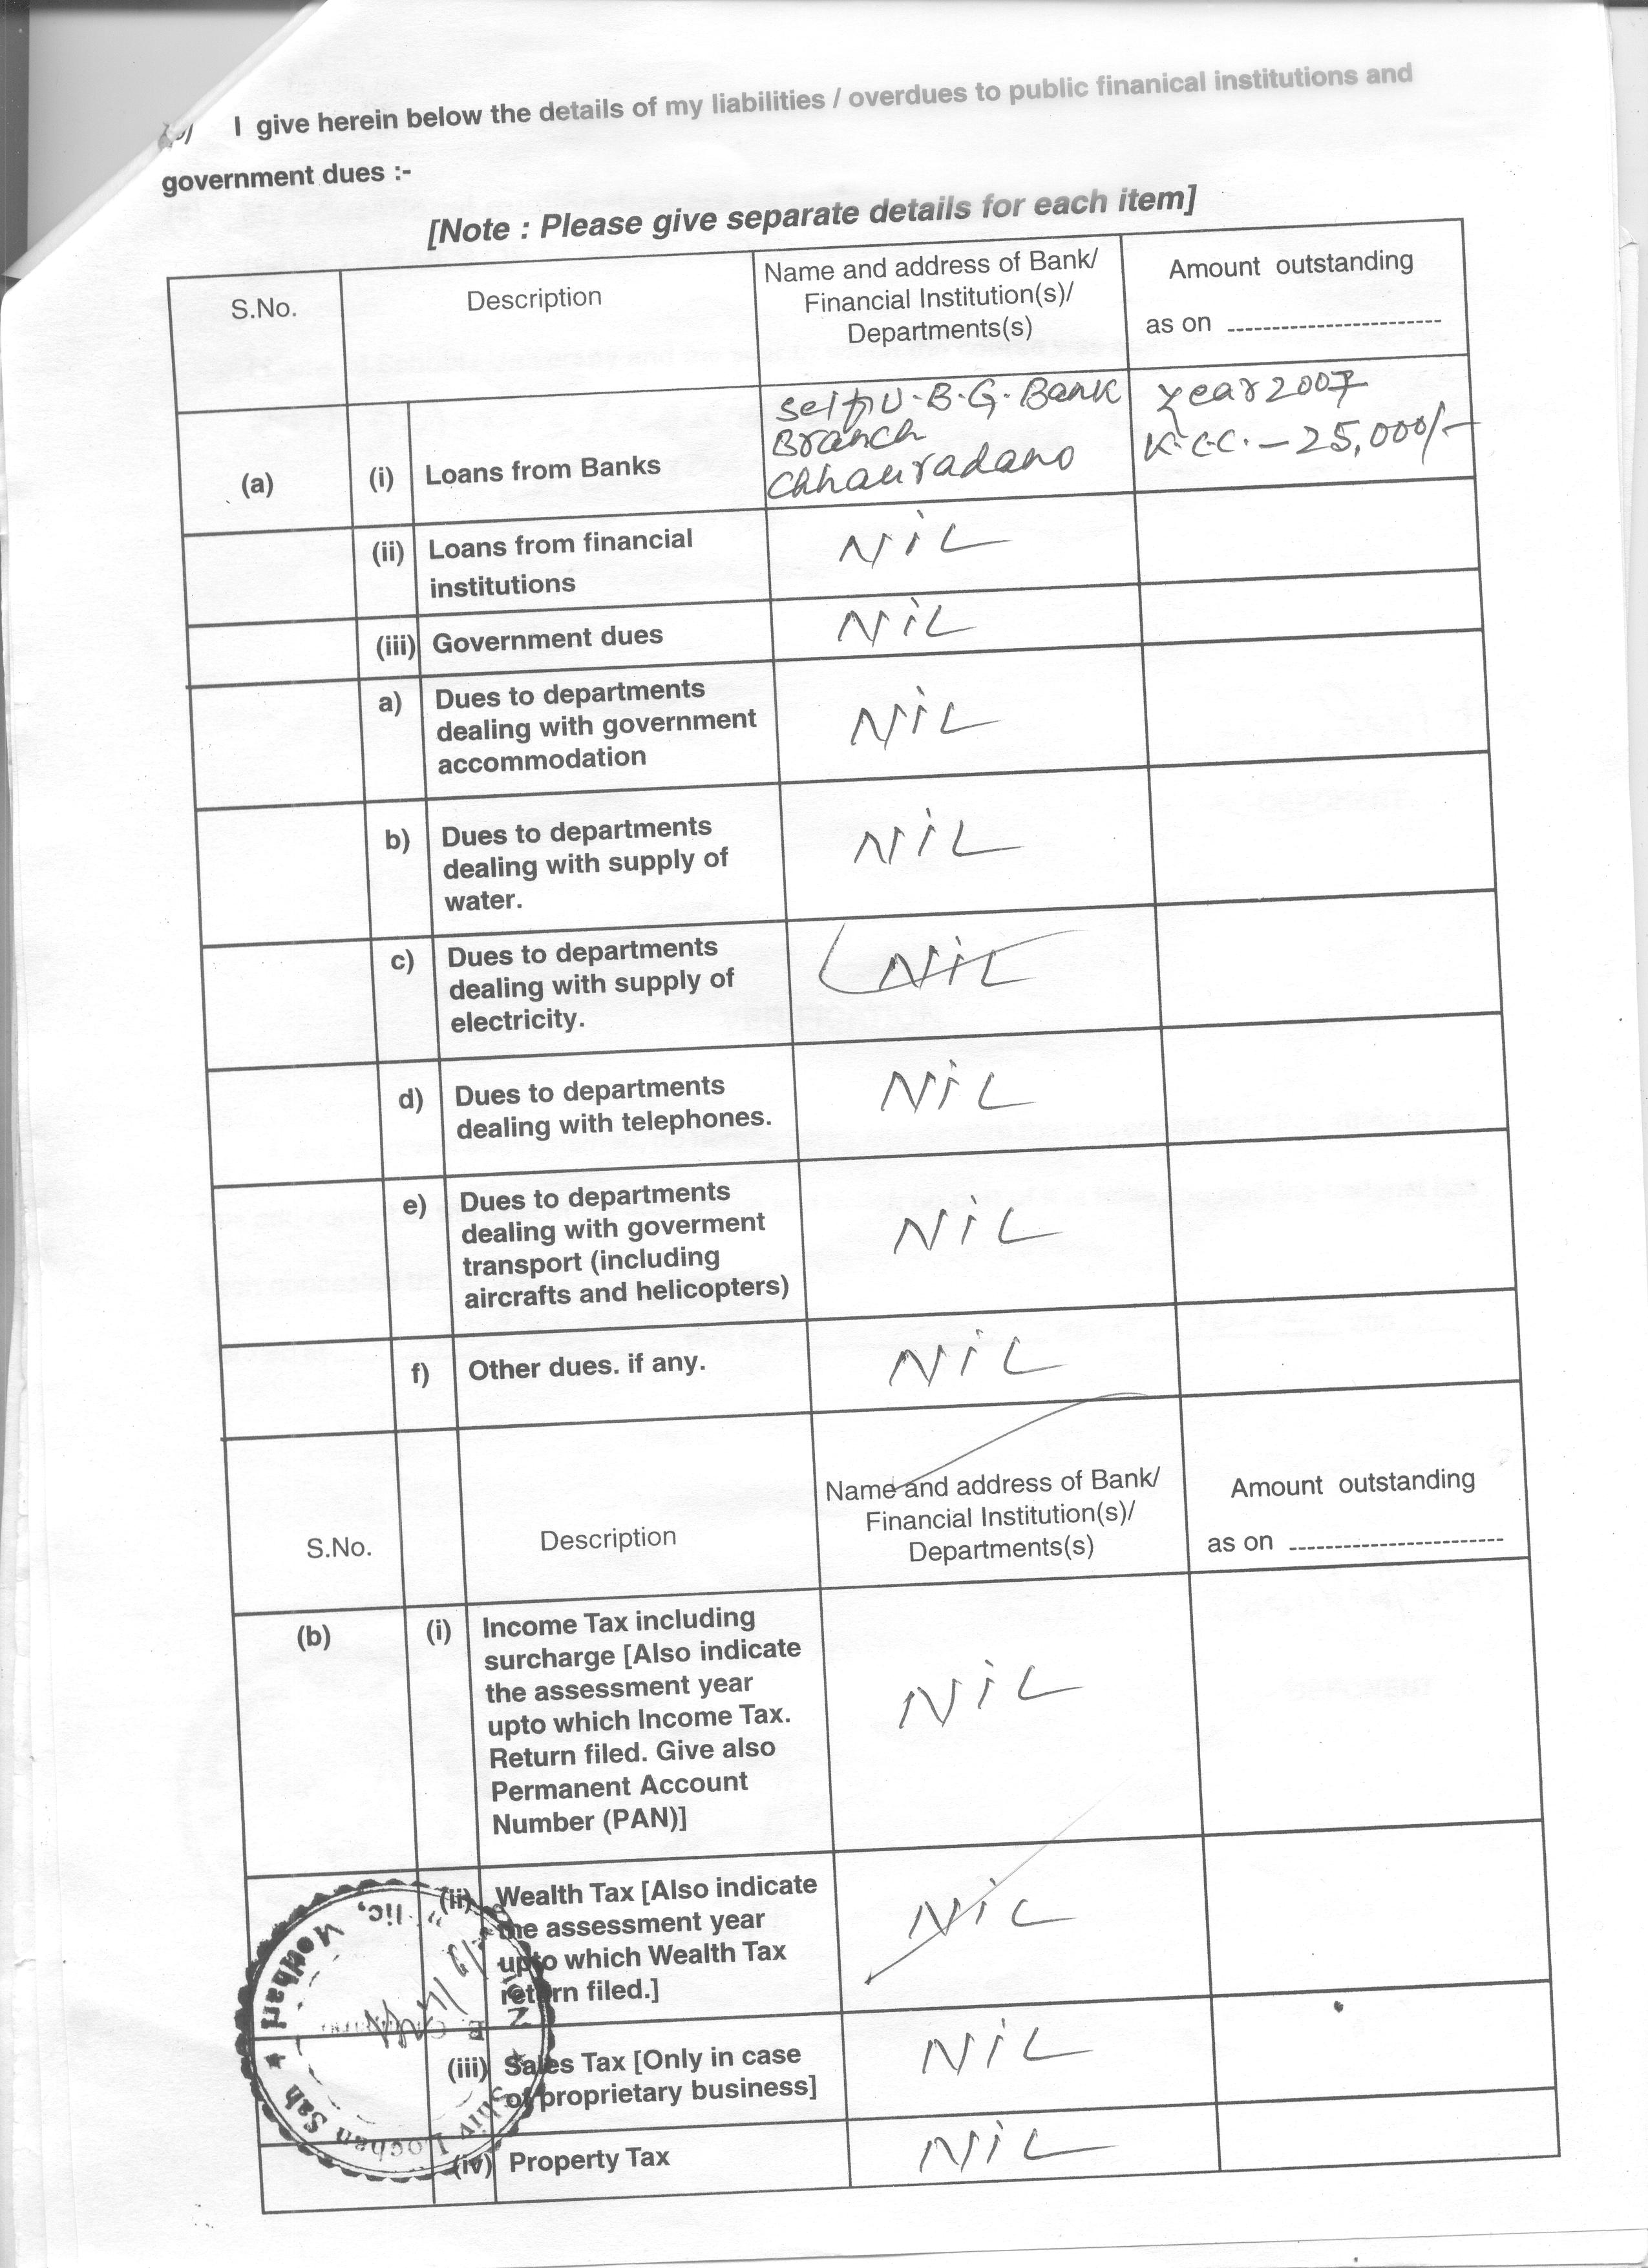 I give herein below the details of my liabilities / overdues to public finanical institutions and
government dues :-
[Note : Please give separate details for each item]
S.No.
Description
Name and address of Bank/
Financial Institution(s)/
Departments(s)
Amount outstanding
as on ------------------------
(a)
(i)
Loans from Banks
self U.B.G. Bank
Branch
Chhauradano
Year 2007
K.C.C. - 25,000/-
(ii)
Loans from financial
institutions
NiL
(iii)
Government dues
NiL
a)
Dues to departments
dealing with government
accommodation
NiL
b)
Dues to departments
dealing with supply of
water.
NiL
c)
Dues to departments
dealing with supply of
electricity.
NiL
d)
Dues to departments
dealing with telephones.
NiL
e)
Dues to departments
dealing with goverment
transport (including
aircrafts and helicopters)
NiL
f)
Other dues. if any.
NiL
S.No.
Description
Name and address of Bank/
Financial Institution(s)/
Departments(s)
Amount outstanding
as on ------------------------
(b)
(i)
Income Tax including
surcharge [Also indicate
the assessment year
upto which Income Tax.
Return filed. Give also
Permanent Account
Number (PAN)]
NiL
(ii)
Wealth Tax [Also indicate
the assessment year
upto which Wealth Tax
return filed.]
NiL
(iii)
Sales Tax [Only in case
of proprietary business]
NiL
(iv)
Property Tax
NiL
Shiv Lochan Sah ★ Motihari